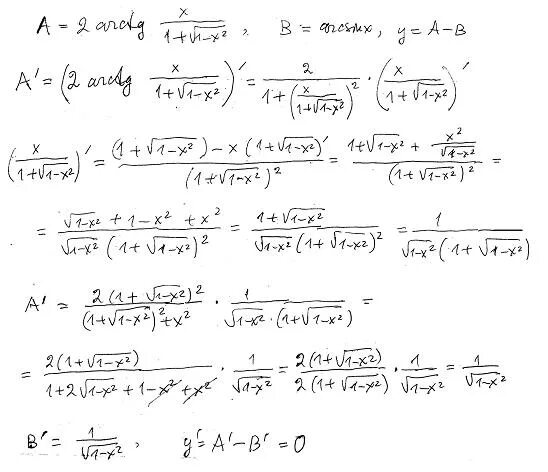 A = 2 arctg x/(1+√(1-x²)) , B = arcsinx, y = A-B
A' = (2 arctg x/(1+√(1-x²)))' = 2/(1+(x/(1+√(1-x²)))²) · (x/(1+√(1-x²)))'
(x/(1+√(1-x²)))' = ((1+√(1-x²)) - x(1+√(1-x²))')/(1+√(1-x²))² = (1+√(1-x²) + x²/√(1-x²))/(1+√(1-x²))² =
= (√(1-x²) + 1-x² + x²)/(√(1-x²) (1+√(1-x²))²) = (1+√(1-x²))/(√(1-x²) (1+√(1-x²))²) = 1/(√(1-x²) (1+√(1-x²)))
A' = 2(1+√(1-x²))²/((1+√(1-x²))²+x²) · 1/(√(1-x²)·(1+√(1-x²))) =
= 2(1+√(1-x²))/(1+2√(1-x²)+1-x²+x²) · 1/√(1-x²) = 2(1+√(1-x²))/(2(1+√(1-x²))) · 1/√(1-x²) = 1/√(1-x²)
B' = 1/√(1-x²) , y' = A'-B' = 0